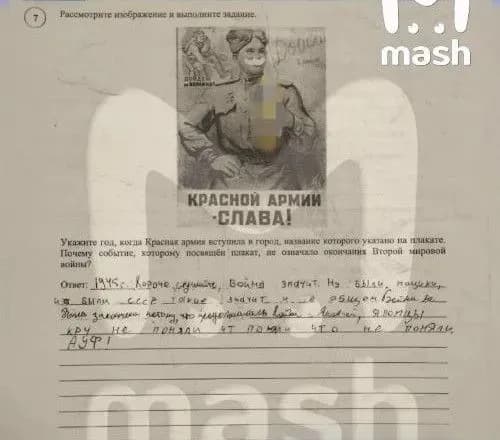 7
Рассмотрите изображение и выполните задание.
mash
ДОЙДЕМ
ДО БЕРЛИНА!
Дошли
КРАСНОЙ АРМИИ
-СЛАВА!
Укажите год, когда Красная армия вступила в город, название которого указано на плакате.
Почему событие, которому посвящён плакат, не означало окончания Второй мировой
войны?
Ответ: 1945г. Короче, слушайте, война значит. Ну были нацики,
ну были СССР такие значит и в общем
война закончена потому, что продолжалась война Японцы
кру не поняли чт поняли что не поняли
АУФ!
mash